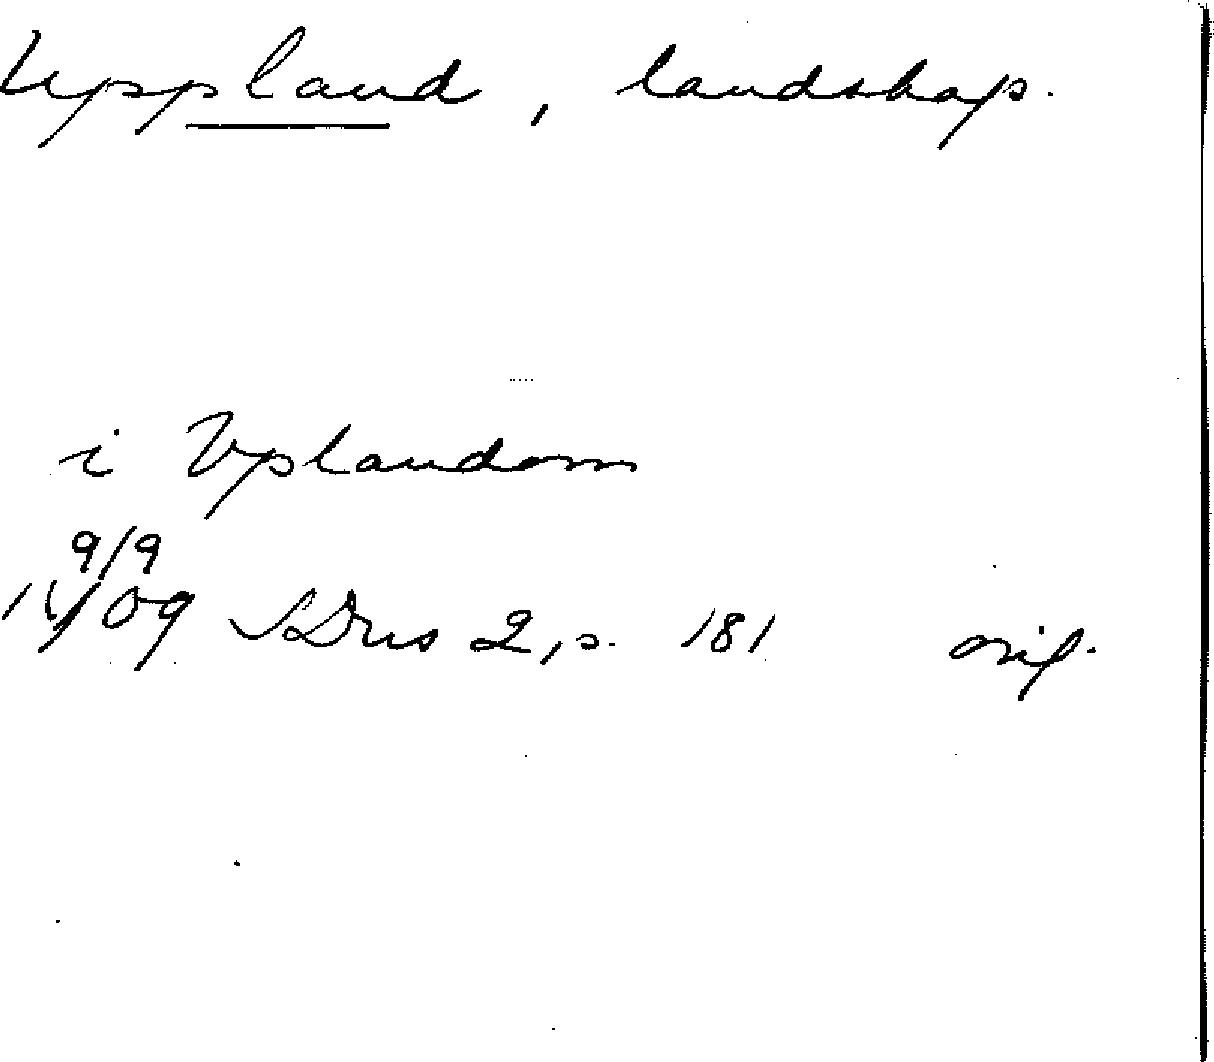 Uppland, landskap.
i Vplandom
9/9
1409 SDns 2, s. 181 orig.